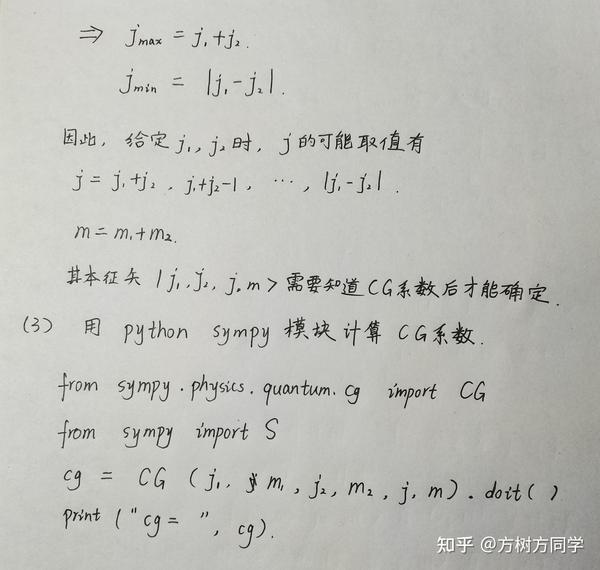 ⇒ jmax = j₁+j₂.
jmin = |j₁-j₂|.
因此, 给定 j₁, j₂ 时, j 的可能取值有
j = j₁+j₂, j₁+j₂-1, ⋯, |j₁-j₂|.
m = m₁+m₂.
其本征矢 |j₁, j₂, j, m> 需要知道CG系数后才能确定.
(3) 用 python sympy 模块计算 CG系数.
from sympy.physics.quantum.cg import CG
from sympy import S
cg = CG (j₁, m₁, j₂, m₂, j, m).doit()
print ("cg= ", cg).
知乎 @方树方同学